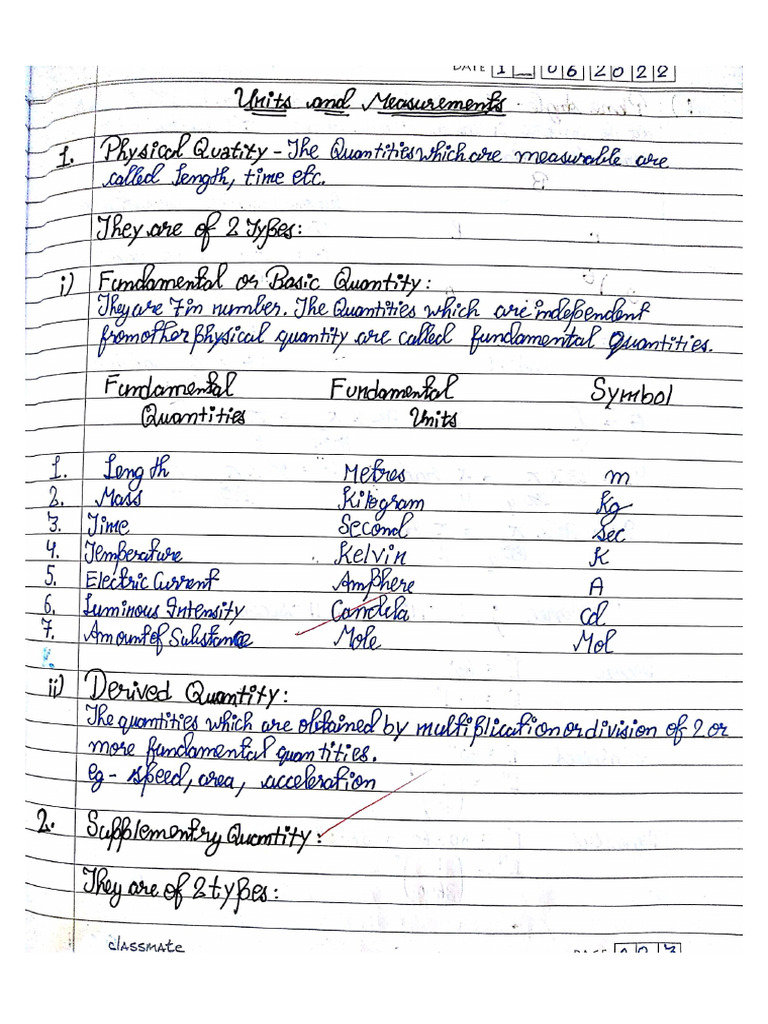 DATE 1 _ 06 2022
Units and Measurements
1. Physical Quatity - The Quantities which are measurable are
called length, time etc.
They are of 2 Types:
i) Fundamental or Basic Quantity:
They are 7 in number. The Quantities which are independent
from other physical quantity are called fundamental Quantities.
Fundamental Fundamental Symbol
Quantities Units
1. Length Metres m
2. Mass Kilogram Kg
3. Time Second sec
4. Temperature Kelvin K
5. Electric Current Amphere A
6. Luminous Intensity Candela Cd
7. Amount of Substance Mole Mol
ii) Derived Quantity:
The quantities which are obtained by multiplication or division of 2 or
more fundamental quantities.
eg - speed, area, acceleration
2. Supplementry Quantity:
They are of 2 types:
classmate
PAGE